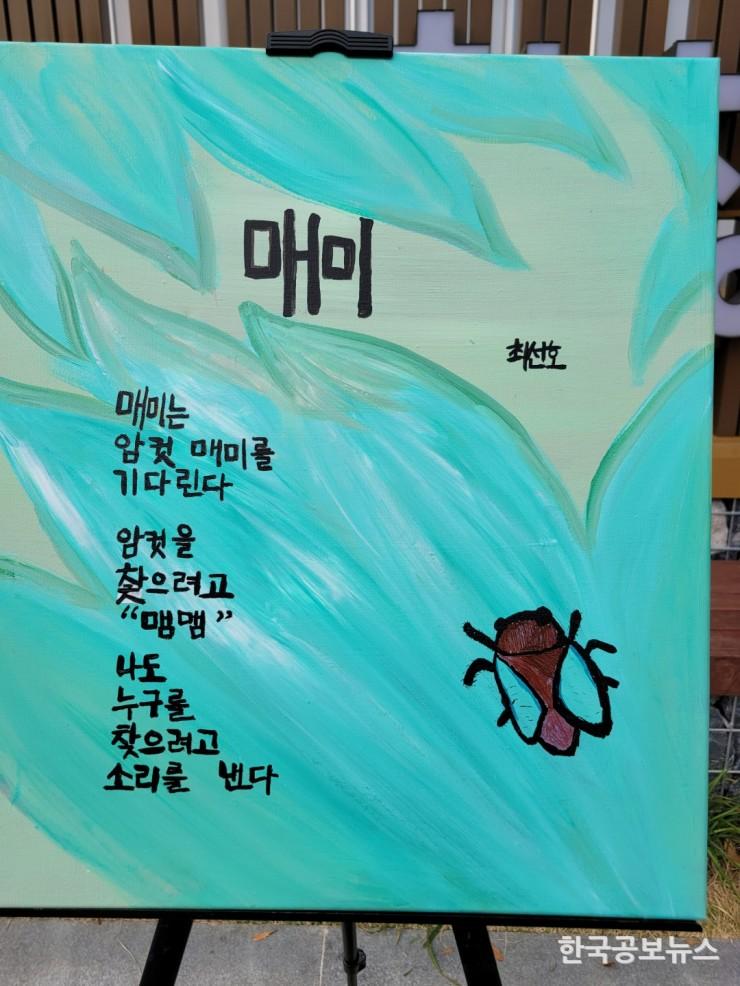 매미
최선호
매미는
암컷 매미를
기다린다
암컷을
찾으려고
“맴맴”
나도
누구를
찾으려고
소리를 낸다
한국공보뉴스